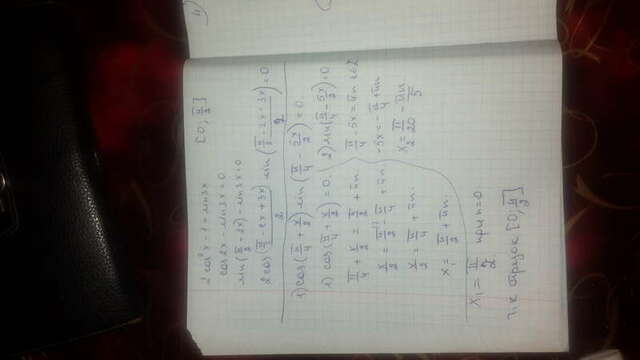 2cos²x - 1 = sin3x [0, π/2]
cos2x - sin3x = 0
sin(π/2 - 2x) - sin3x = 0
2cos (π/2 - 2x + 3x)/2 · sin (π/2 - 2x - 3x)/2 = 0
1) cos(π/4 + x/2) · sin(π/4 - 5x/2) = 0
1) cos(π/4 + x/2) = 0. 2) sin(π/4 - 5x/2) = 0
π/4 + x/2 = π/2 + πn
x/2 = π/2 - π/4 + πn
x/2 = π/4 + πn.
x₁ = π/2 + πn
π/4 - 5x = πn n∈Z
-5x = -π/4 + πn
x₂ = π/20 - πn/5
x₁ = π/2 при n=0
т.к отрезок [0, π/2]